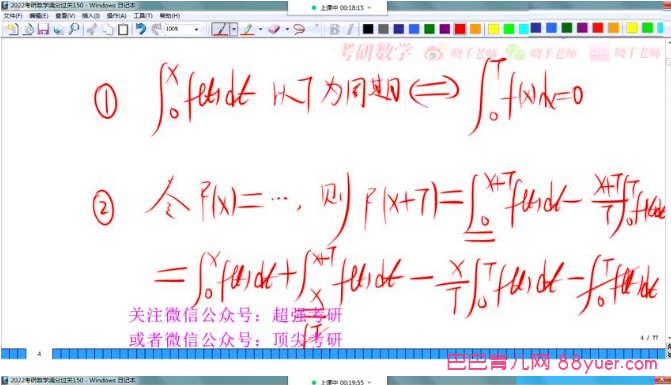 2022考研数学满分过关150 - Windows 日记本
上课中 00:18:15
文件(F) 编辑(E) 查看(V) 插入(I) 操作(A) 工具(T) 帮助(H)
100%
考研数学 晓千老师 晓千老师 晓千老师
① ∫₀ˣ f(t)dt 以T为周期 ⟺ ∫₀ᵀ f(x)dx=0
② 令 F(x)=…, 则 F(x+T)=∫₀ˣ⁺ᵀ f(t)dt − (x+T)/T ∫₀ᵀ f(t)dt
=∫₀ˣ f(t)dt+∫ₓˣ⁺ᵀ f(t)dt − x/T ∫₀ᵀ f(t)dt − ∫₀ᵀ f(t)dt
关注微信公众号：超强考研
或者微信公众号：顶尖考研
4 / 77
4
巴巴育儿网 88yuer.com
2022考研数学满分过关150 - Windows 日记本
上课中 00:19:55